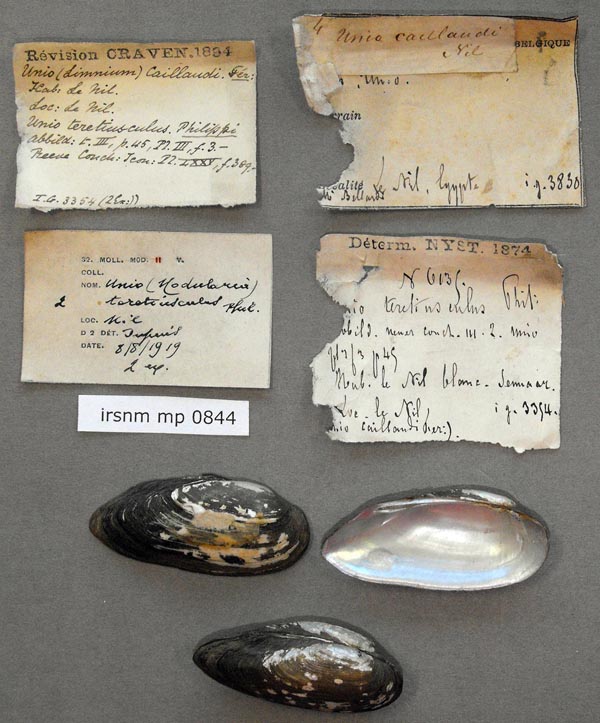 Révision CRAVEN. 1894
Unio (dimnium) Caillaudi. Fér:
Hab: le Nil.
Loc: Le Nil.
Unio teretiusculus. Philippi
Abbild: t. III, p. 45, Pl. III, f. 3.—
Reeve Conch: Icon: Pl. LXXV, f. 389.
I.G. 3354 (2 Ex:)
4 Unio caillaudi
Nil
BELGIQUE
Unio.
rrain
calité Le Nil, Egypte
M. Bellard
i g. 3830
S2. MOLL. MOD. II V.
COLL.
NOM. Unio (Nodularia)
2 teretiusculus Phil.
LOC. Nil
D 2 DÉT. Dupuis
DATE. 8/8/1919
2 ex.
Déterm. NYST. 1874
N 6135.
nio teretiusculus Phil:
bbild. neuer conch. III. 2. unio
pl 3 f 3 p 45
Hab. le Nil blanc. Sennaar.
Loc. le Nil, i g. 3354.
nio caillaudi fer:).
irsnm mp 0844